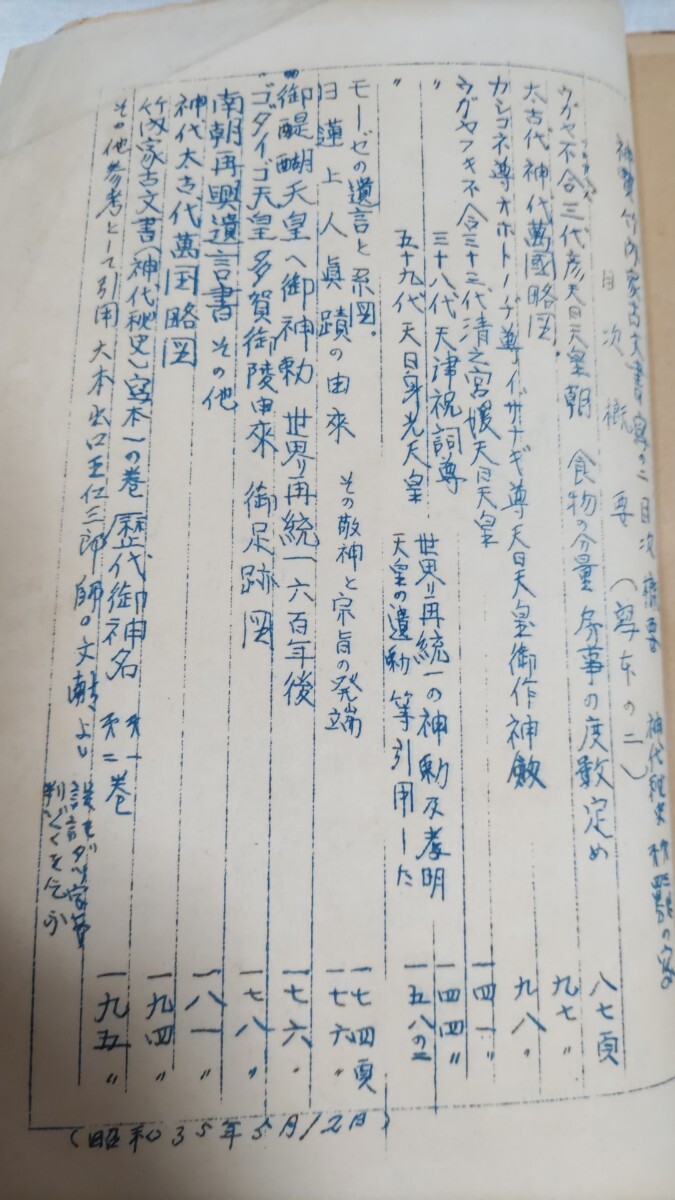 神寶竹内家古文書寫の二 目次 概要 神代秘史
目次概要(寫本の二)
ウガヤ不合三代彦天日天皇朝 食物の分量 房事の度数定め 八七頁
太古代神代萬國略図. 九七〃
カシコネ尊オホトノヂ尊イザナギ尊天日天皇御作神劔 九八〃
ウガヤフキ不合三十三代清之宮媛天日天皇 一四一〃
〃 三十八代天津祝詞尊 一四四〃
〃 五十九代天日身光天皇 世界再統一の神勅及孝明天皇の遺勅等引用した 一五八の二
モーゼの遺言と系図. 一七四頁
日蓮上人眞蹟の由來 その敬神と宗旨の発端 一七六〃
御醍醐天皇へ御神勅 世界再統一六百年後 一七六〃
〃ゴダイゴ天皇多賀御陵由來 御足跡図 一七八〃
南朝再興遺言書その他 一八一〃
神代太古代萬国略図 一九四〃
竹内家古文書(神代秘史)寫本一の巻 歴代御神名 第一第二巻 一九五〃
その他参考として引用 大本出口王仁三郎師の文献より
(昭和35年5月12日)